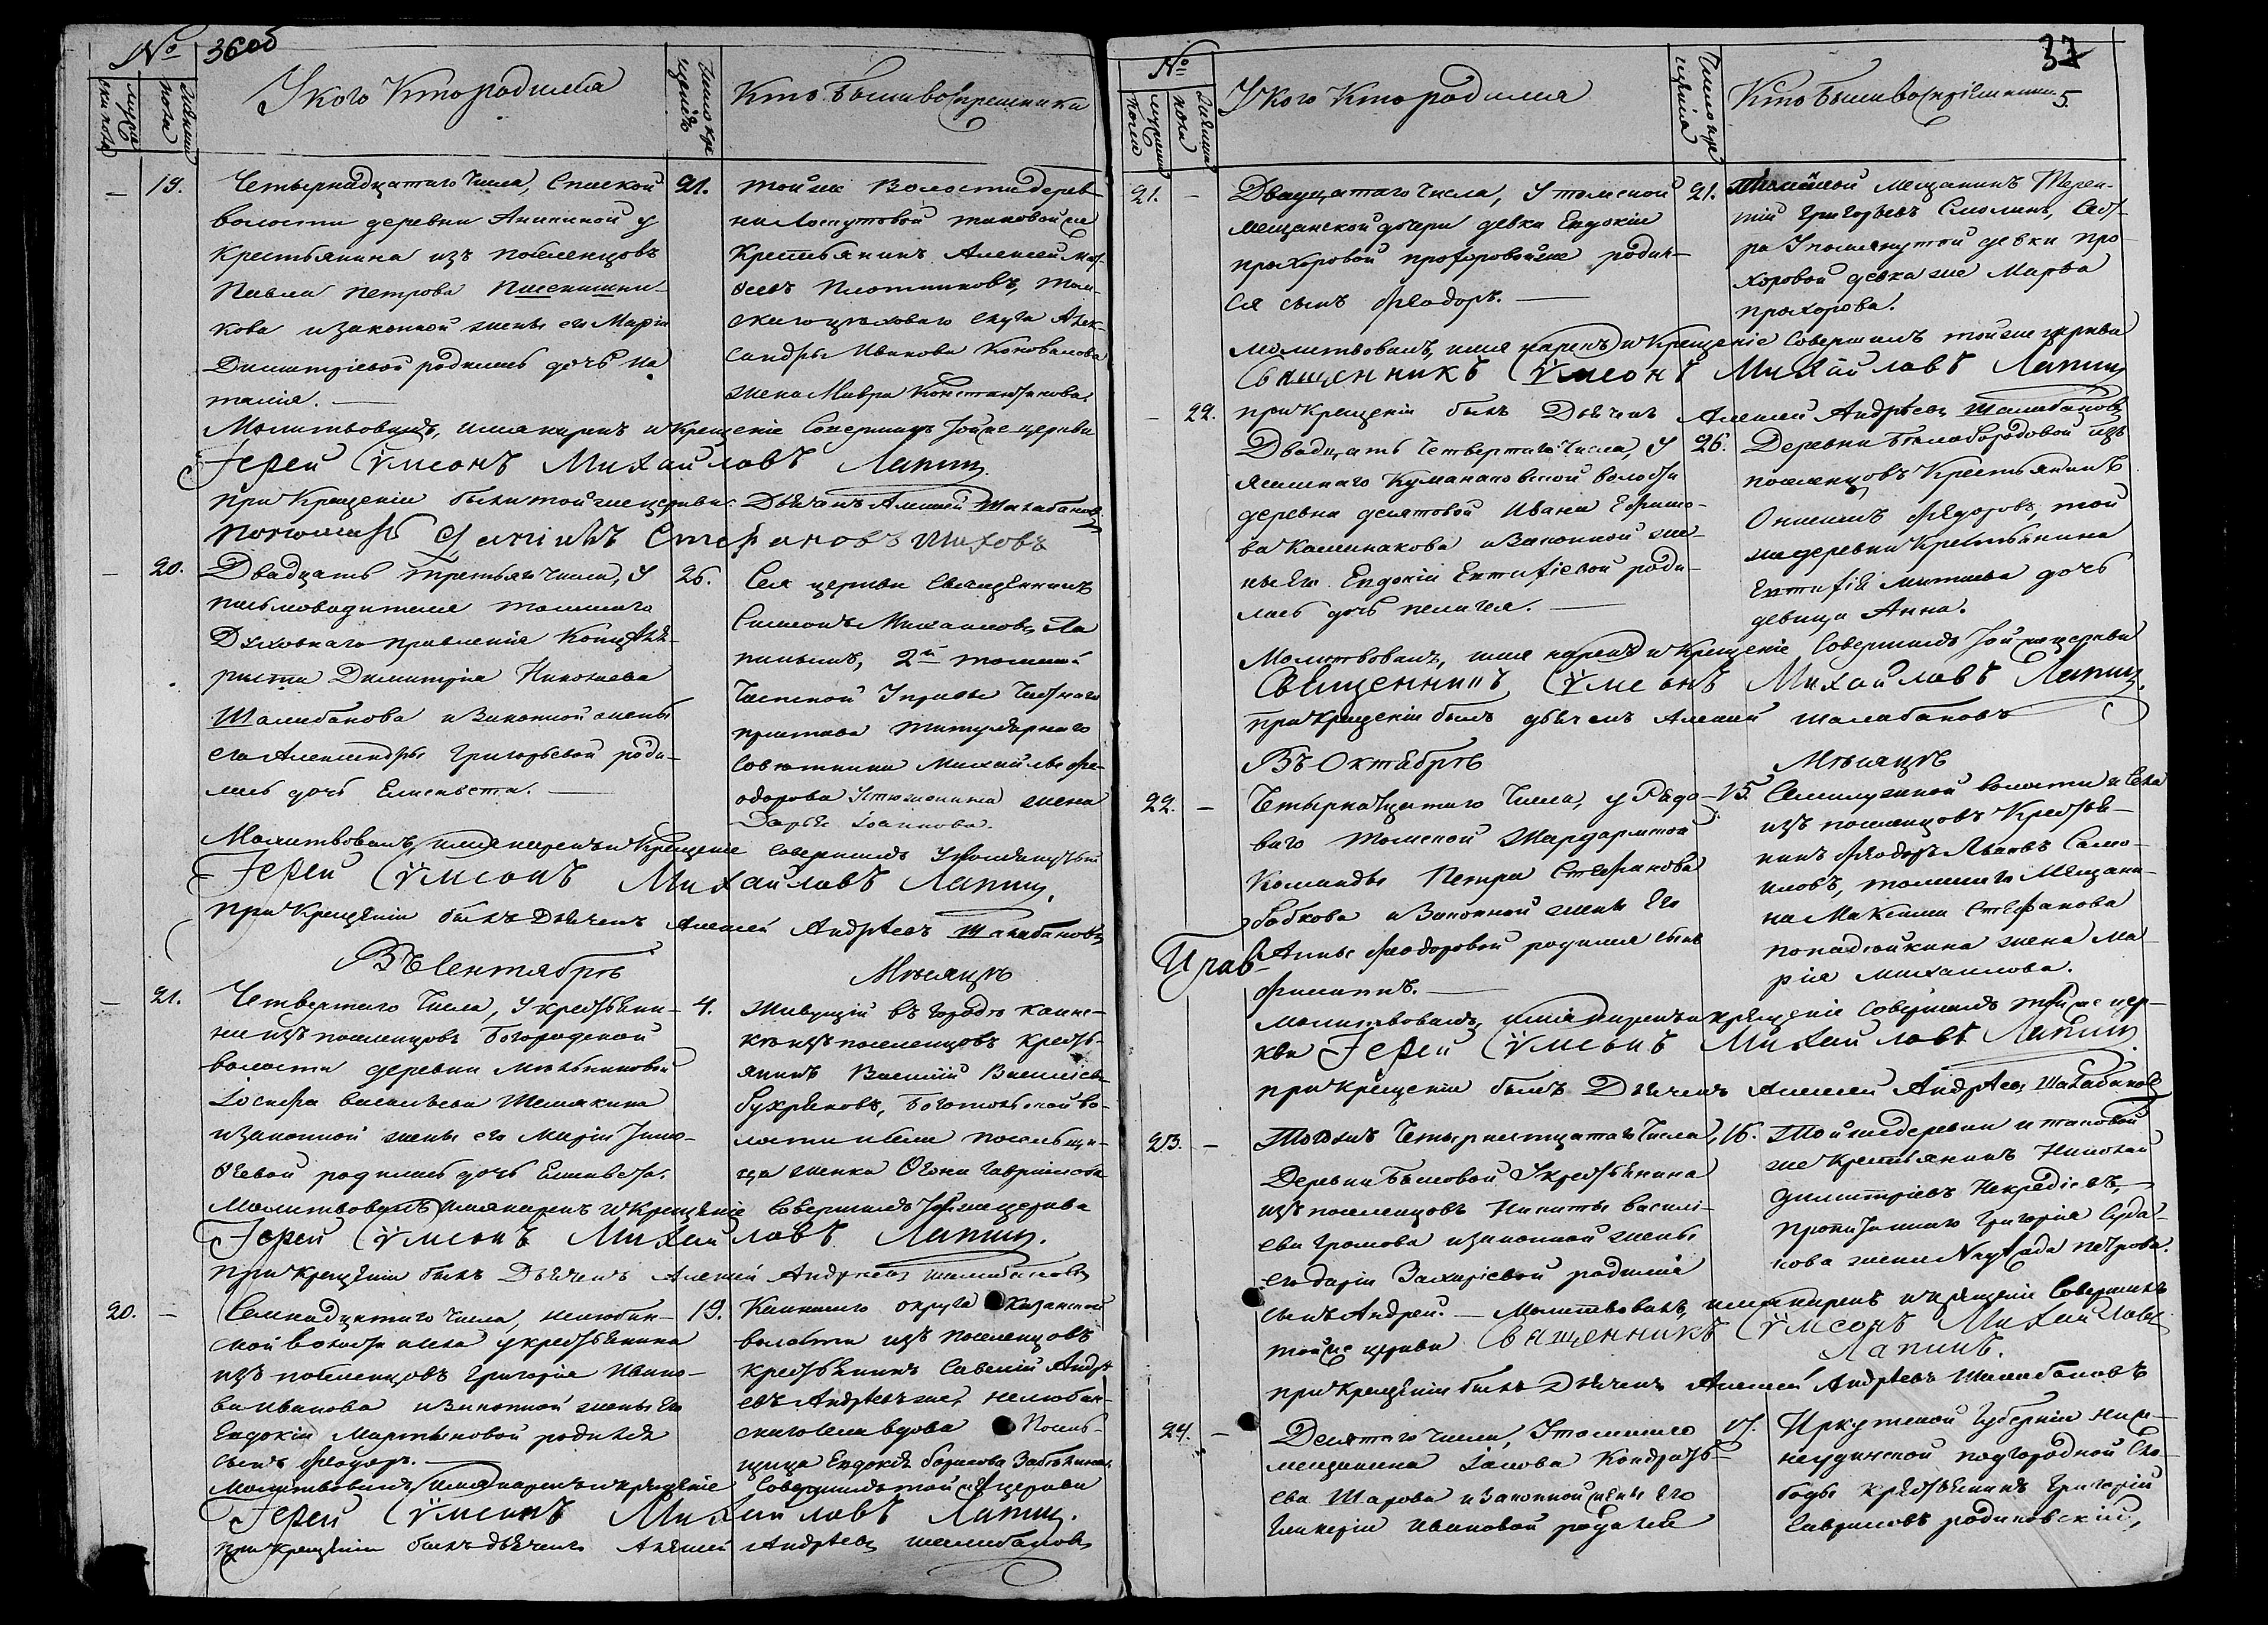 № 36 об
мужеска пола
женска пола
У кого кто родился
Число крещенія
Кто были воспрѣемники
— 19. Четырнадцатаго числа, Спаской
волости деревни Аникиной у
крестьянина изъ поселенцовъ
Павла Петрова Пшенишни-
кова и законной жены его Маріи
Димитріевой родилась дочь На
талія. —
21. той же волости дерев-
ни Лоскутовой таковой же
крестьянинъ Алексей
Плотниковъ, Том-
скаго цеховаго слуга Алек-
сандры Иванова Коновалова
жена Мавра Константинова.
Молитвовалъ, имя нарекъ и крещеніе совершилъ той же церкви
Іерей Сѵмеонъ Михайловъ Лапинъ
При крещеніи были той же церкви Дьячекъ Алексей Шалабановъ
Пономарь Стефановъ
— 20. Двадцать третьяго числа, у
письмоводителя томскаго
Духовнаго правленія канцеля-
риста Димитрія Николаева
Шалабанова и законной жены
его Александры Григорьевой роди-
лась дочь Елисавета. —
26. Сея церкви священникъ
Симеонъ Михаиловъ Ла
пинымъ, 2й томской
частной Управы частнаго
пристава титулярнаго
совѣтника Михайлы Фе-
одорова жена
Дарья Іоаннова.
Молитвовалъ, имя нарекъ и крещеніе совершилъ упомянутый
Іерей Сѵмеонъ Михайловъ Лапинъ,
При крещеніи былъ Дьячекъ Алексей Андрѣевъ Шалабановъ
Въ Сентябрѣ Мѣсяцѣ
— 21. Четвертаго числа, у крестьяни-
на изъ поселенцовъ Богородской
волости деревни Мельниковой
Іосифа Васильева Шемякина
и законной жены его Маріи Тимо-
ѳеевой родилась дочь Елисавета.
4. Живущій въ городѣ Каинс-
кѣ изъ поселенцовъ кресть-
янинъ Василій Василіевъ
Бухряковъ, Боготольской во-
лости и села посельщи-
ца женка Гаврилова
Молитвовалъ, имя нарекъ и крещеніе совершилъ той же церкви
Іерей Сѵмеонъ Михайловъ Лапинъ.
При крещеніи былъ Дьячекъ Алексей Андреевъ Шалабановъ
20. — Семнадцатаго числа, нелюбин-
ской волости села у крестьянина
изъ поселенцовъ Григорія Ивано-
ва Иванова и законной жены его
Евдокіи Мартыновой родился
сынъ Ѳеодоръ. —
19. Каинскаго округа Казанской
волости изъ поселенцовъ
крестьянинъ Савелій Андре
евъ Андреевъ же, нелюбин-
скаго села вдова Посель-
щица Евдокія Борисова
Молитвовалъ, имя нарекъ и крещеніе совершилъ той же церкви
Іерей Сѵмеонъ Михайловъ Лапинъ.
При крещеніи былъ Дьячекъ Алексей Андреевъ Шалабановъ
№ 37
мужеска пола
женска пола
У кого кто родился
Число крещенія
Кто были воспріемники 5
21. — Двадцатаго числа, у томской
мещанской дочери девки Евдокіи
Прохоровой Прохоровой же родил-
ся сынъ Ѳеодоръ. —
21. Томской мещанинъ Терен-
тій Григорьевъ Смолинъ, сест-
ра упомянутой девки Про-
хоровой девка же Марѳа
Прохорова.
Молитвовалъ, имя нарекъ и крещеніе совершилъ той же церкви
Священникъ Сѵмеонъ Михайловъ Лапинъ
При крещеніи былъ Дьячекъ Алексей Андрѣевъ Шалабановъ
— 22. Двадцать четвертаго числа, у
ясашнаго Кумановской волости
деревни десятовой Ивана Ефимо-
ва Калинакова и законной же-
ны его Евдокіи Ентифіевой роди-
лась дочь Пелагея. —
26. Деревни Белобородовой изъ
поселенцовъ крестьянинъ
Онисимъ Ѳедоровъ, той
же деревни крестьянина
Ентифія дочь
девица Анна.
Молитвовалъ, имя нарекъ и крещеніе совершилъ той же церкви
Священникъ Сѵмеонъ Михайловъ Лапинъ.
При крещеніи былъ дьячекъ Алексей Шалабановъ
Въ Октябрѣ Мѣсяцѣ
22. — Четырнадцатаго числа, у Рядо-
ваго Томской Жандармской
Команды Петра Стефанова
Бобкова и законной жены его
Анны Ѳеодоровой родился сынъ
Филиппъ. —
15. Семилужной волости и села
изъ поселенцовъ крестья-
нинъ Ѳеодоръ Яковъ Само-
иловъ, томскаго мещани-
на Максима Стефанова
Попадюйкина жена Ма
рія Михаилова.
Молитвовалъ, имя нарекъ и крещеніе совершилъ той же цер-
кви Іерей Сѵмеонъ Михайловъ Лапинъ
При крещеніи былъ Дьячекъ Алексей Андрѣевъ Шалабановъ
23. — Того же четырнадцатаго числа,
Деревни Бѣлтовой у крестьянина
изъ поселенцовъ Никиты Василі-
ева Громова и законной жены
его Даріи Захаріевой родился
сынъ Андрей. —
16. Той же деревни и таковой
же крестьянинъ Николай
Димитріевъ
Григорія
нова жена Петрова.
Молитвовалъ, имя нарекъ и крещеніе совершилъ
той же церкви Священникъ Сѵмеонъ Михайловъ
Лапинъ.
При крещеніи былъ Дьячекъ Алексей Андрѣевъ Шалабановъ
24. — Десятаго числа, у томскаго
мещанина Іакова Кондрать-
ева Шарова и законной жены его
Гликеріи Ивановой родился
17. Иркутской Губерніи ниж-
неудинской подгородной сло-
боды крестьянинъ Григорій
Гавриловъ родиковскій,